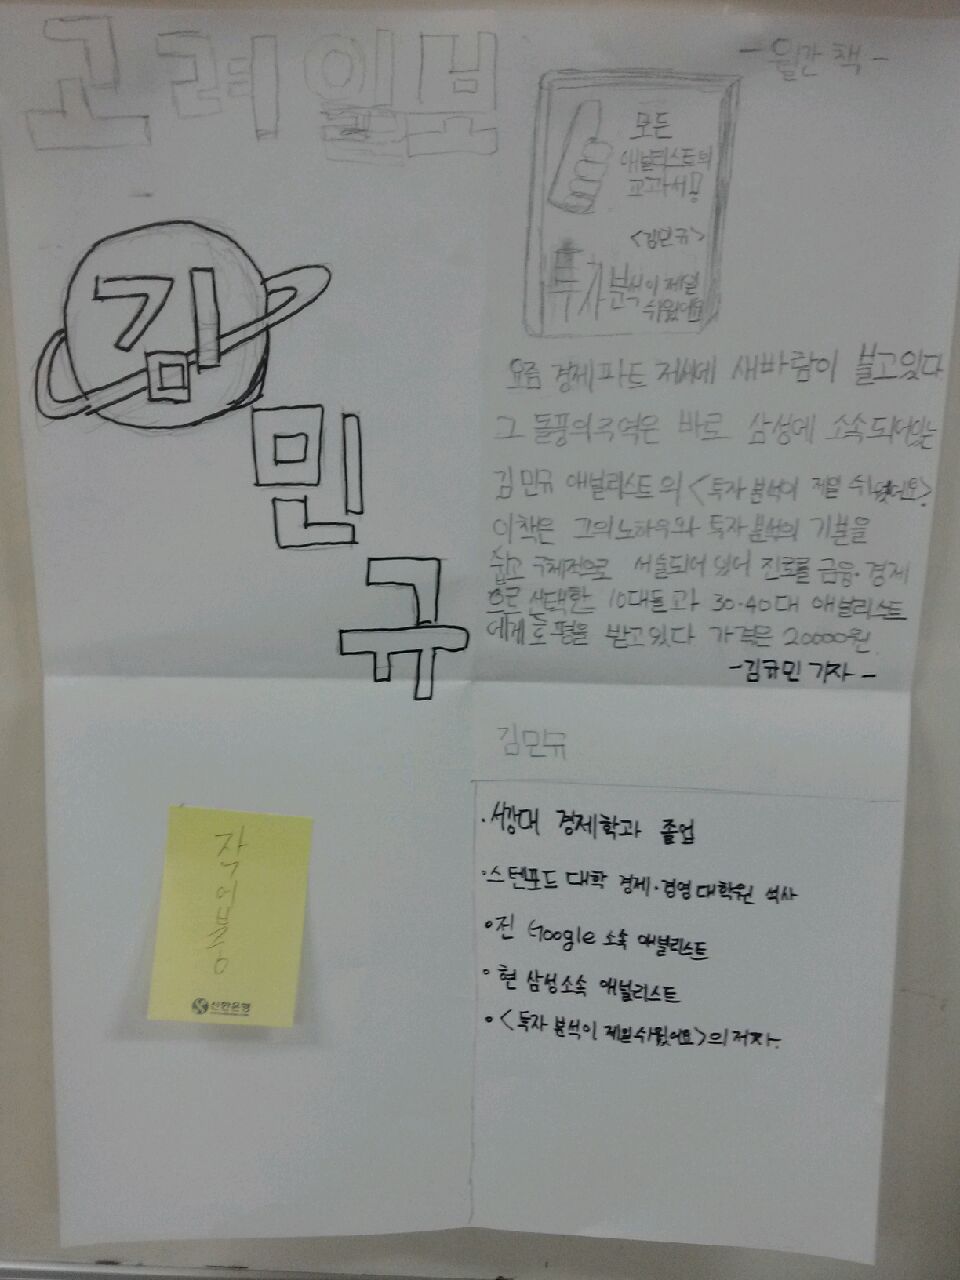 고려일보
김
민
규
- 월간 책 -
모든
애널리스트의
교과서!
<김민규>
투자분석이 제일
쉬웠어요
요즘 경제파트 저서에 새바람이 불고있다
그 돌풍의 주역은 바로 삼성에 소속되어있는
김민규 애널리스트의 <투자 분석이 제일 쉬웠어요>
이책은 그의노하우와 투자분석의 기본을
쉽고 구체적으로 서술되어 있어 진로를 금융·경제
으로 선택한 10대들과 30·40대 애널리스트
에게 호평을 받고있다 가격은 20000원.
- 김규민 기자 -
김민규
·서강대 경제학과 졸업
·스텐포드 대학 경제·경영대학원 석사
·전 Google 소속 애널리스트
·현 삼성소속 애널리스트
·<투자 분석이 제일쉬웠어요>의 저자.
작업중
신한은행